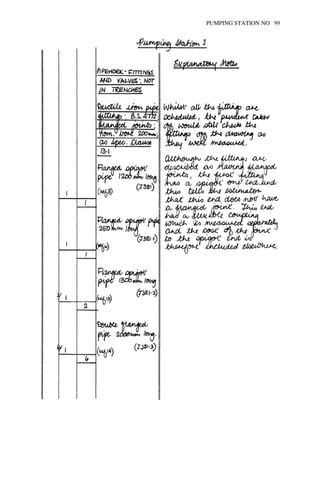 PUMPING STATION NO 99
Pumping Station 1
Explanatory Note
PIPEWORK - FITTINGS
AND VALVES; NOT
IN TRENCHES
Ductile iron pipe
fittings; B.S. 4772
flanged joints;
Nom. bore 200mm;
as Spec. Clause
13.1
Flanged spigot
pipe 1200mm long
(J381)
1
1
Flanged spigot pipe
250mm long
(J381.1)
1
1
Flanged spigot
pipe 1300mm long
(J381.2)
2/ 1
2
Double flanged
pipe 2000mm long.
(J381.3)
1
6
Whilst all the fittings are
scheduled, the prudent taker
off would still check the
fittings off the drawing as
they were measured.
Although the fittings are
described as having flanged
joints, the first fitting
has a spigot one end and
this tells the estimator
that this end does not have
a flanged joint. This end
has a flexible coupling
which is measured separately
and the cost of the joint
to the spigot end is
therefore included elsewhere.